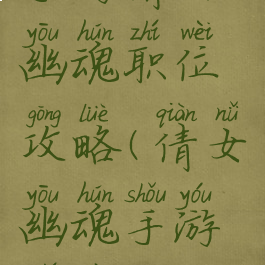 yōu hún zhí wèi
幽魂职位
gōng lüè qiàn nǚ
攻略(倩女
yōu hún shǒu yóu
幽魂手游